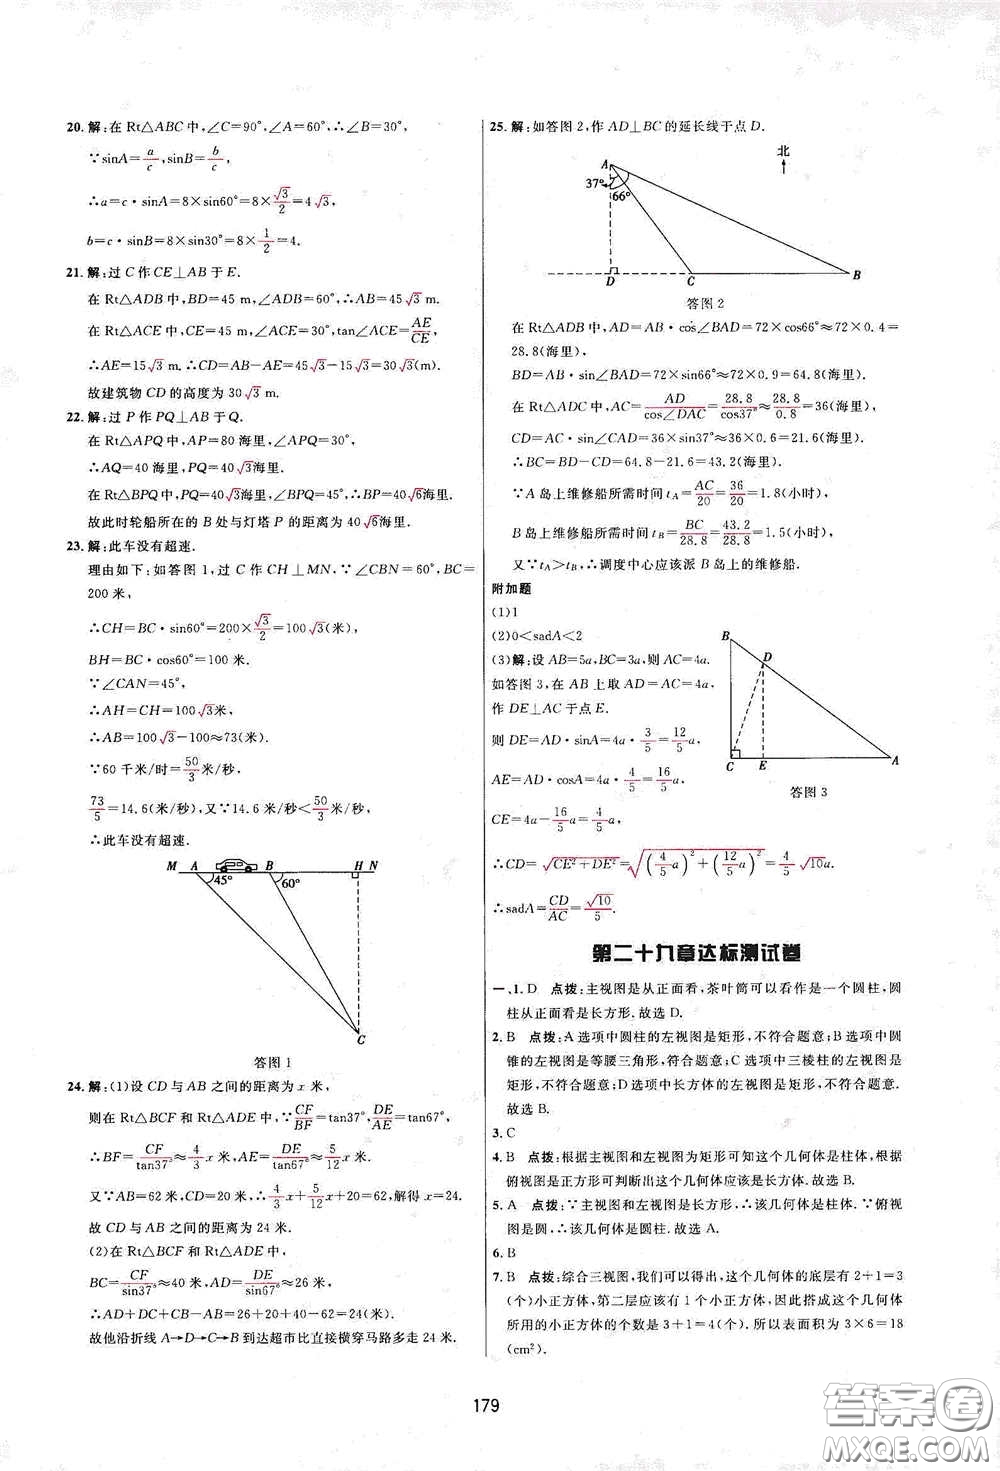 20. 解:在 Rt△ABC 中,∠C=90°,∠A=60°,∴∠B=30°.
∵sinA=a/c,sinB=b/c,
∴a=c·sinA=8×sin60°=8×√3/2=4√3,
b=c·sinB=8×sin30°=8×1/2=4.
21. 解:过 C 作 CE⊥AB 于 E.
在 Rt△ADB 中,BD=45 m,∠ADB=60°,∴AB=45√3 m.
在 Rt△ACE 中,CE=45 m,∠ACE=30°,tan∠ACE=AE/CE,
∴AE=15√3 m.∴CD=AB-AE=45√3-15√3=30√3(m).
故建筑物 CD 的高度为 30√3 m.
22. 解:过 P 作 PQ⊥AB 于 Q.
在 Rt△APQ 中,AP=80 海里,∠APQ=30°,
∴AQ=40 海里,PQ=40√3海里.
在 Rt△BPQ 中,PQ=40√3海里,∠BPQ=45°,∴BP=40√6海里.
故此时轮船所在的 B 处与灯塔 P 的距离为 40√6海里.
23. 解:此车没有超速.
理由如下:如答图 1,过 C 作 CH⊥MN,∵∠CBN=60°,BC=
200 米,
∴CH=BC·sin60°=200×√3/2=100√3(米),
BH=BC·cos60°=100 米.
∵∠CAN=45°,
∴AH=CH=100√3米,
∴AB=100√3-100≈73(米).
∵60 千米/时=50/3米/秒,
73/5=14.6(米/秒),又∵14.6 米/秒<50/3米/秒,
∴此车没有超速.
M A B H N
45° 60°
C
答图 1
24. 解:(1)设 CD 与 AB 之间的距离为 x 米,
则在 Rt△BCF 和 Rt△ADE 中,∵CF/BF=tan37°,DE/AE=tan67°,
∴BF=CF/tan37°≈4/3x 米,AE=DE/tan67°≈5/12x 米.
又∵AB=62 米,CD=20 米,∴4/3x+5/12x+20=62,解得 x=24.
故 CD 与 AB 之间的距离为 24 米.
(2)在 Rt△BCF 和 Rt△ADE 中,
BC=CF/sin37°≈40 米,AD=DE/sin67°≈26 米,
∴AD+DC+CB-AB=26+20+40-62=24(米).
故他沿折线 A→D→C→B 到达超市比直接横穿马路多走 24 米.
25. 解:如答图 2,作 AD⊥BC 的延长线于点 D.
北
A
37°
66°
D C B
答图 2
在 Rt△ADB 中,AD=AB·cos∠BAD=72×cos66°≈72×0.4=
28.8(海里),
BD=AB·sin∠BAD=72×sin66°≈72×0.9=64.8(海里).
在 Rt△ADC 中,AC=AD/cos∠DAC=28.8/cos37°≈28.8/0.8=36(海里),
CD=AC·sin∠CAD=36×sin37°≈36×0.6=21.6(海里).
∴BC=BD-CD=64.8-21.6=43.2(海里).
∵A 岛上维修船所需时间 tA=AC/20=36/20=1.8(小时),
B 岛上维修船所需时间 tB=BC/28.8=43.2/28.8=1.5(小时),
又∵tA>tB,∴调度中心应该派 B 岛上的维修船.
附加题
(1)1
(2)0<sadA<2
(3)解:设 AB=5a,BC=3a,则 AC=4a.
如答图 3,在 AB 上取 AD=AC=4a,
作 DE⊥AC 于点 E.
则 DE=AD·sinA=4a·3/5=12/5a,
AE=AD·cosA=4a·4/5=16/5a,
CE=4a-16/5a=4/5a,
∴CD=√(CE²+DE²)=√((4/5a)²+(12/5a)²)=4/5√10a.
∴sadA=CD/AC=√10/5.
B
D
C E A
答图 3
第二十九章达标测试卷
一、1. D 点拨:主视图是从正面看,茶叶筒可以看作是一个圆柱,圆
柱从正面看是长方形.故选 D.
2. B 点拨:A 选项中圆柱的左视图是矩形,不符合题意;B 选项中圆
锥的左视图是等腰三角形,符合题意;C 选项中三棱柱的左视图是
矩形,不符合题意;D 选项中长方体的左视图是矩形,不符合题意.
故选 B.
3. C
4. B 点拨:根据主视图和左视图为矩形可知这个几何体是柱体,根据
俯视图是正方形可判断出这个几何体应该是长方体.
5. A 点拨:∵主视图和左视图是长方形,∴该几何体是柱体.∵俯视
图是圆,∴该几何体是圆柱.故选 A.
6. B
7. B 点拨:综合三视图,我们可以得出,这个几何体的底层有 2+1=3
(个)小正方体,第二层应该有 1 个小正方体,因此搭成这个几何体
所用的小正方体的个数是 3+1=4(个).所以表面积为 3×6=18
(cm²).
179
答案卷
MXQE.COM